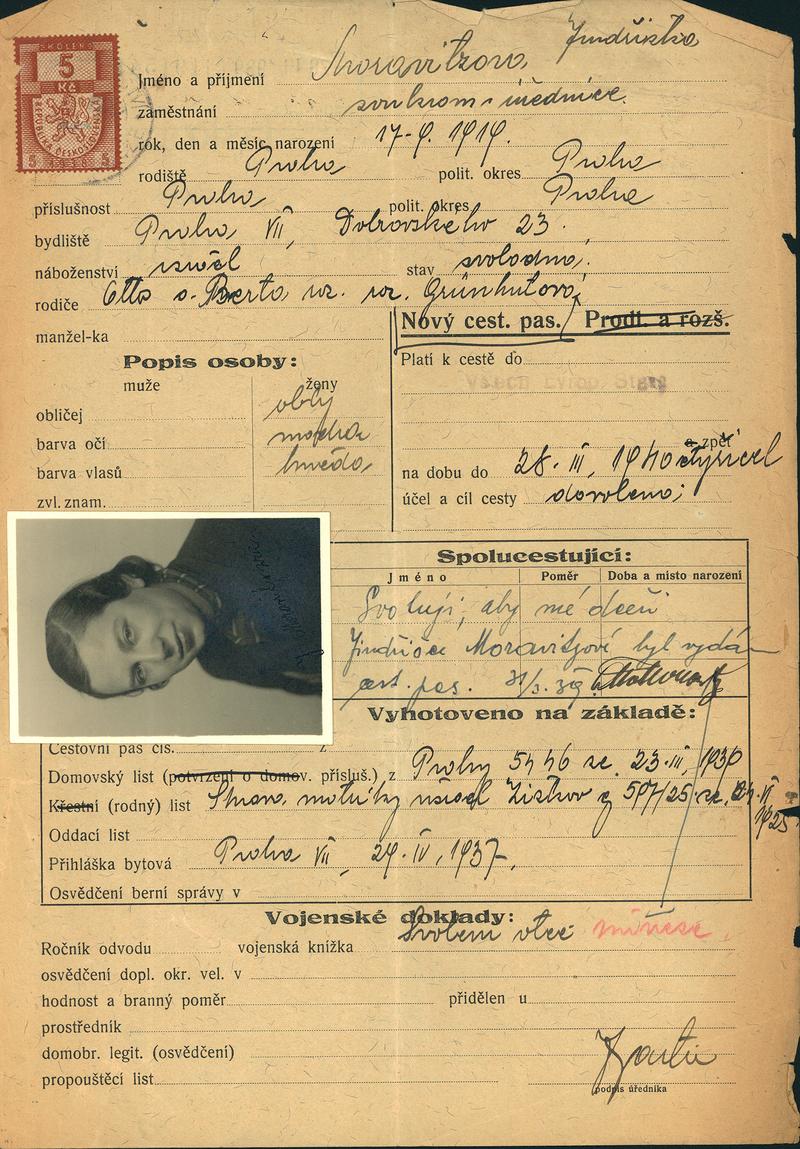 KOLEK
5
Kč
REPUBLIKA ČESKOSLOVENSKÁ
5 5
Jméno a příjmení Moravitzová Jindřiška
zaměstnání soukrom. úřednice.
rok, den a měsíc narození 17-9. 1919.
rodiště Praha polit. okres Praha
příslušnost Praha polit. okres Praha
bydliště Praha VII, Dobrovského 23.
náboženství israel stav svobodná.
rodiče Otto a Berta roz. Grünhutová
manžel-ka
Nový cest. pas. / Prodl. a rozš.
Popis osoby:
Platí k cestě do
muže ženy
Všech Evrop. Států
obličej oblý
barva očí modrá
a zpět
barva vlasů hnědá
na dobu do 28. III, 1940
zvl. znam.
účel a cíl cesty dovolená;
Spolucestující:
Jméno Poměr Doba a místo narození
Svoluji, aby mé dceři
Jindřišce Moravitzové byl vydán
cest. pas. 31/3. 39.
Vyhotoveno na základě:
Cestovní pas čís. z
Domovský list (potvrzení o domov. přísluš.) z Prahy 5446 ze 23. III, 1939
Křestní (rodný) list matriky israel Žižkov 1925
Oddací list
Přihláška bytová Praha VII, 29. IV, 1937,
Osvědčení berní správy v
Vojenské doklady:
Svolení otce
Ročník odvodu vojenská knížka
osvědčení dopl. okr. vel. v
hodnost a branný poměr přidělen u
prostředník
domobr. legit. (osvědčení)
propouštěcí list
podpis úředníka